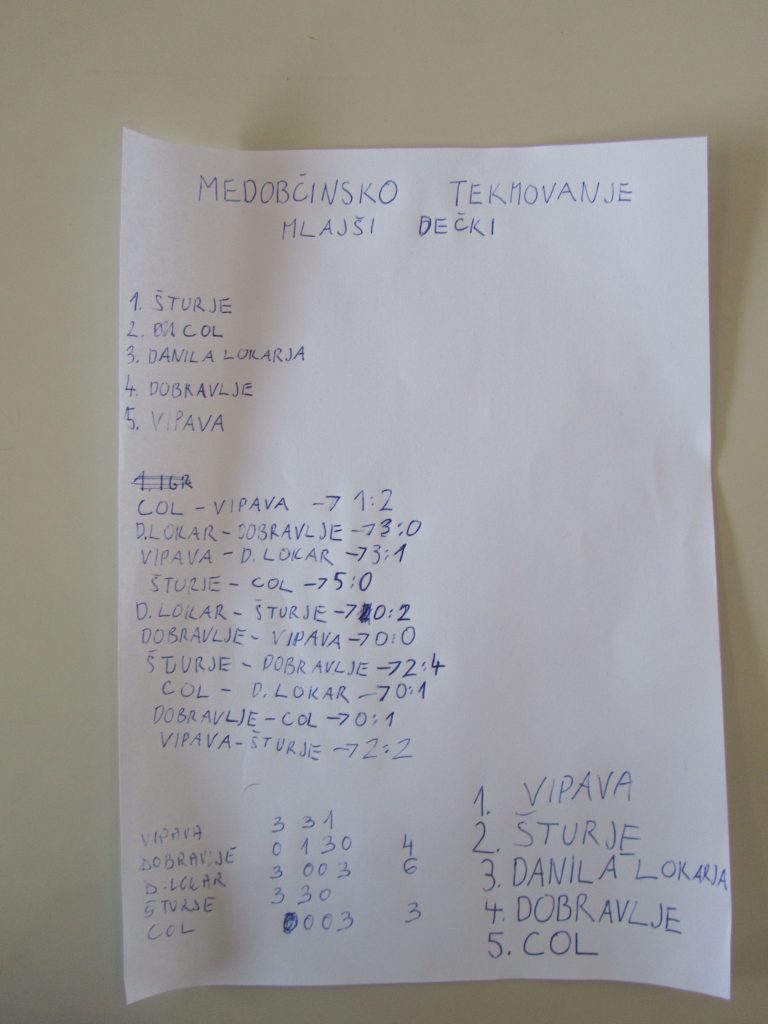 MEDOBČINSKO TEKMOVANJE
MLAJŠI DEČKI
1. ŠTURJE
2. COL
3. DANILA LOKARJA
4. DOBRAVLJE
5. VIPAVA
1. IGR
COL - VIPAVA → 1:2
D.LOKAR - DOBRAVLJE → 3:0
VIPAVA - D. LOKAR → 3:1
ŠTURJE - COL → 5:0
D. LOKAR - ŠTURJE → 0:2
DOBRAVLJE - VIPAVA → 0:0
ŠTURJE - DOBRAVLJE → 2:4
COL - D. LOKAR → 0:1
DOBRAVLJE - COL → 0:1
VIPAVA - ŠTURJE → 2:2
VIPAVA 3 3 1
DOBRAVLJE 0 1 3 0 4
D. LOKAR 3 0 0 3 6
ŠTURJE 3 3 0
COL 0 0 0 3 3
1. VIPAVA
2. ŠTURJE
3. DANILA LOKARJA
4. DOBRAVLJE
5. COL